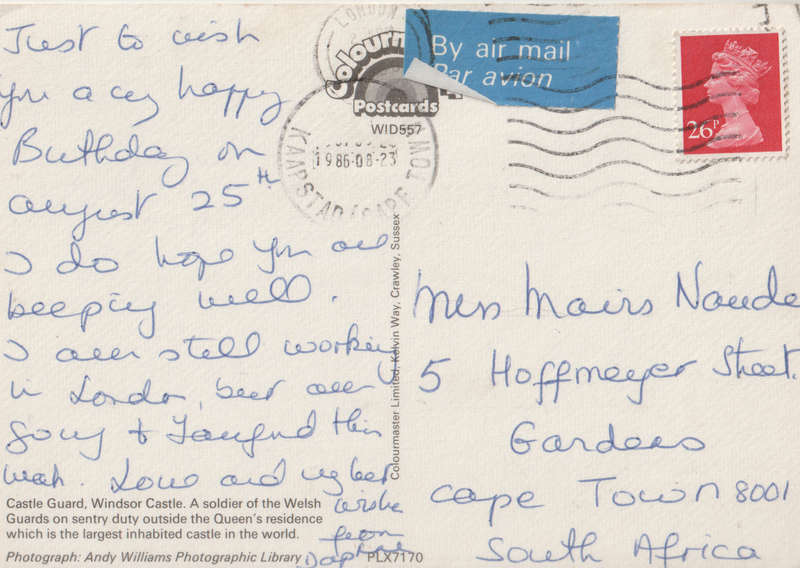 Just to wish
you a very happy
Birthday on
august 25TH
I do hope you are
keeping well.
I am still working
in London, but am
going to
this
week. Love and my best
wishes
from
Daphne
Castle Guard, Windsor Castle. A soldier of the Welsh
Guards on sentry duty outside the Queen's residence
which is the largest inhabited castle in the world.
Photograph: Andy Williams Photographic Library
PLX7170
Colourmaster Limited, Kelvin Way, Crawley, Sussex
LONDON
Colourm
Postcards
WID557
KAAPSTAD (CAPE TOWN
1986-08-23
By air mail
Par avion
26P
Naude
5 Hoffmeyer Street.
Gardens
Cape Town 8001
South Africa